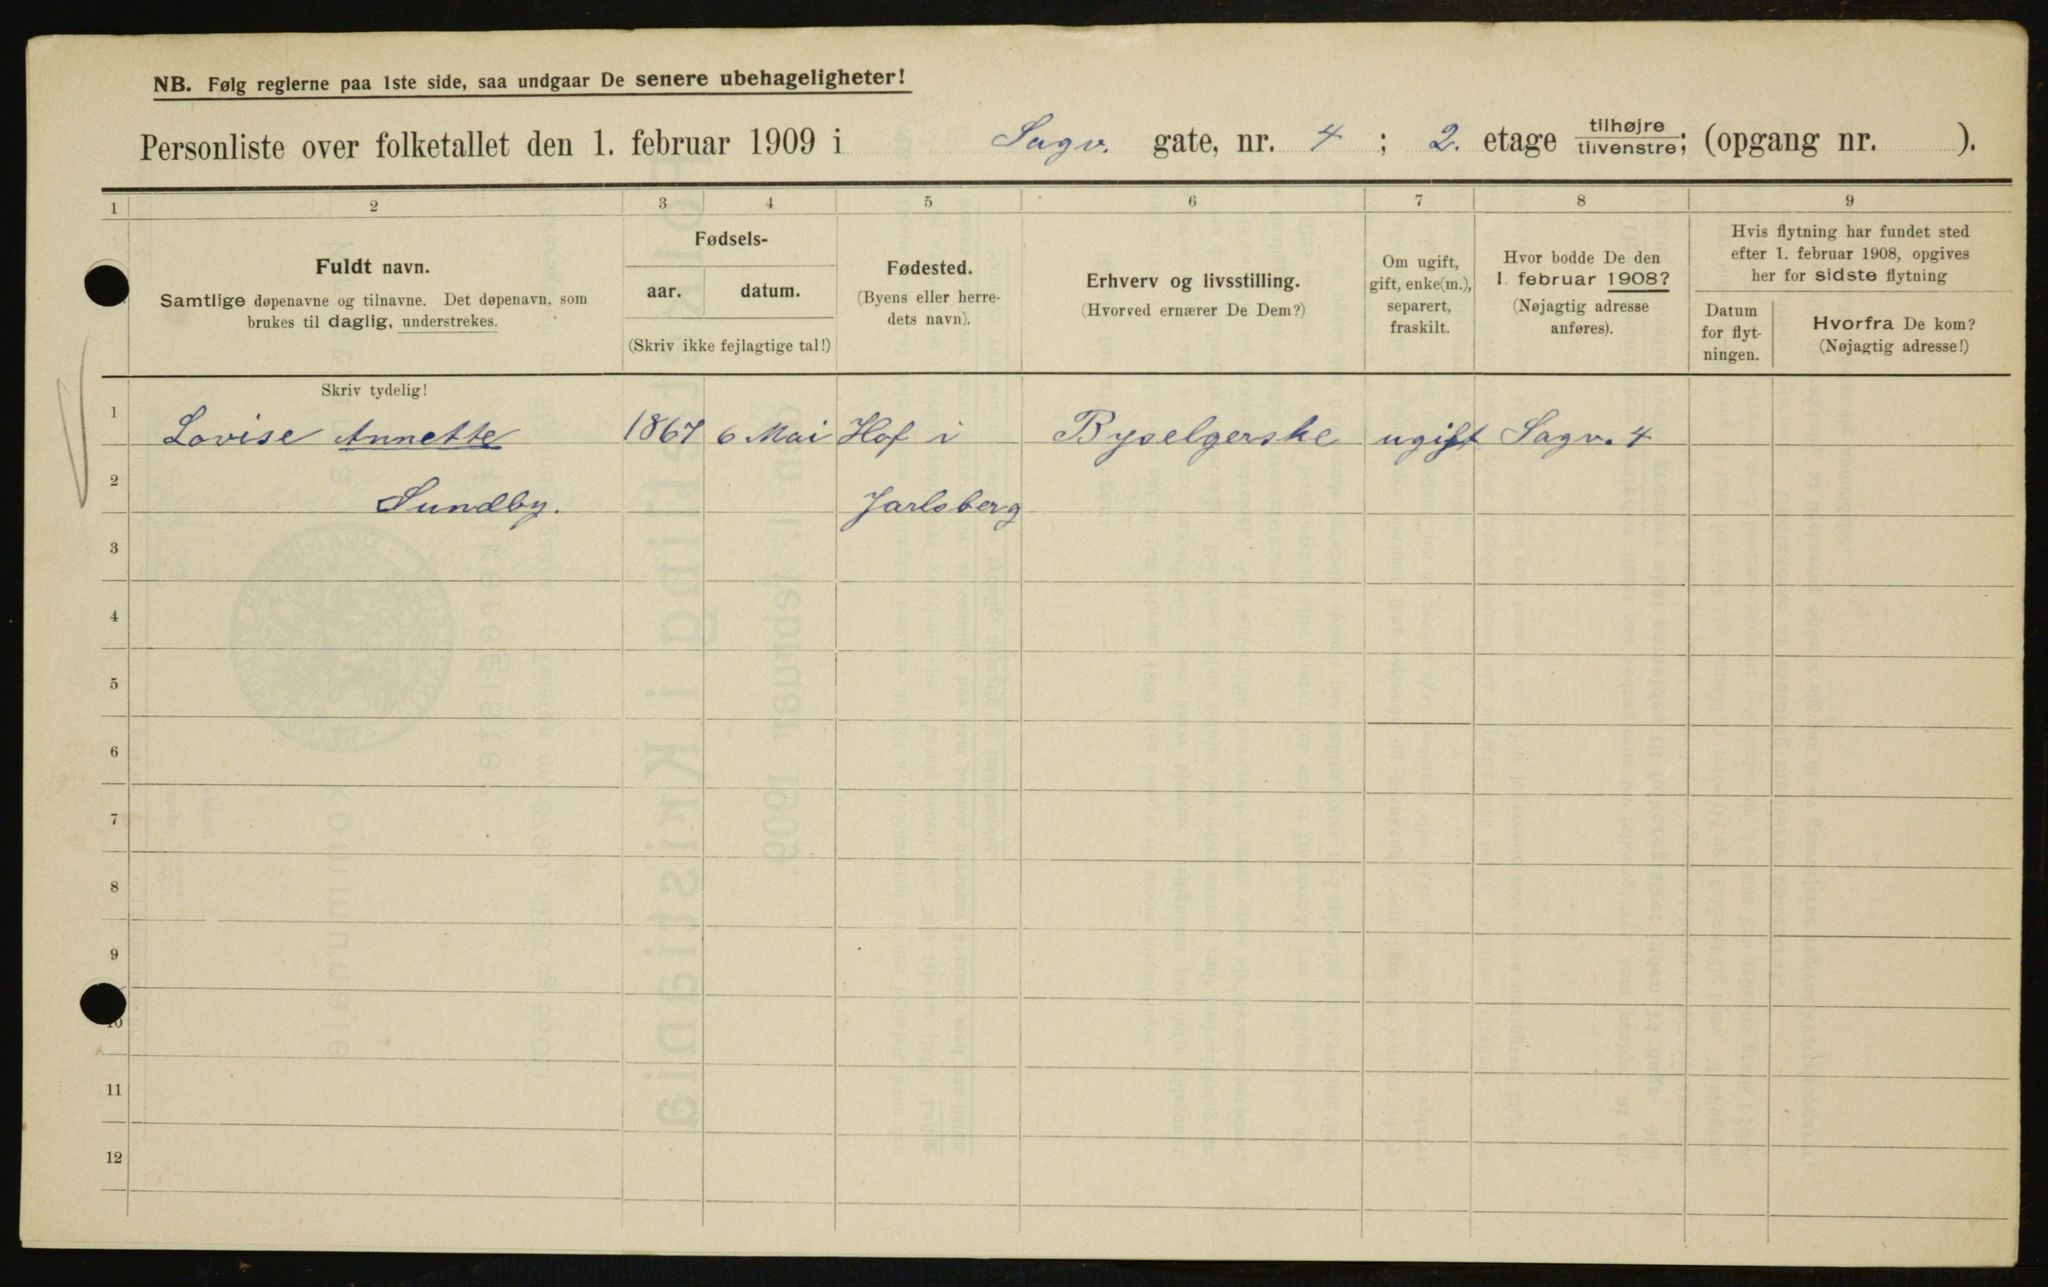 NB. Følg reglerne paa 1ste side, saa undgaar De senere ubehageligheter!
Personliste over folketallet den 1. februar 1909 i Sagv. gate, nr. 4 ; 2. etage tilhøjre tilvenstre; (opgang nr. ).
1 2 3 4 5 6 7 8 9
Fuldt navn.
Samtlige døpenavne og tilnavne. Det døpenavn, som
brukes til daglig, understrekes.
Fødsels-
aar. datum.
(Skriv ikke fejlagtige tal!)
Fødested.
(Byens eller herre-
dets navn).
Erhverv og livsstilling.
(Hvorved ernærer De Dem?)
Om ugift,
gift, enke(m.),
separert,
fraskilt.
Hvor bodde De den
1. februar 1908?
(Nøjagtig adresse
anføres).
Hvis flytning har fundet sted
efter 1. februar 1908, opgives
her for sidste flytning
Datum
for flyt-
ningen.
Hvorfra De kom?
(Nøjagtig adresse!)
Skriv tydelig!
1 Lovise Annette 1867 6 Mai Hof i Byselgerske ugift Sagv. 4
2 Sundby. Jarlsberg
3
4
5
6
7
8
9
10
11
12